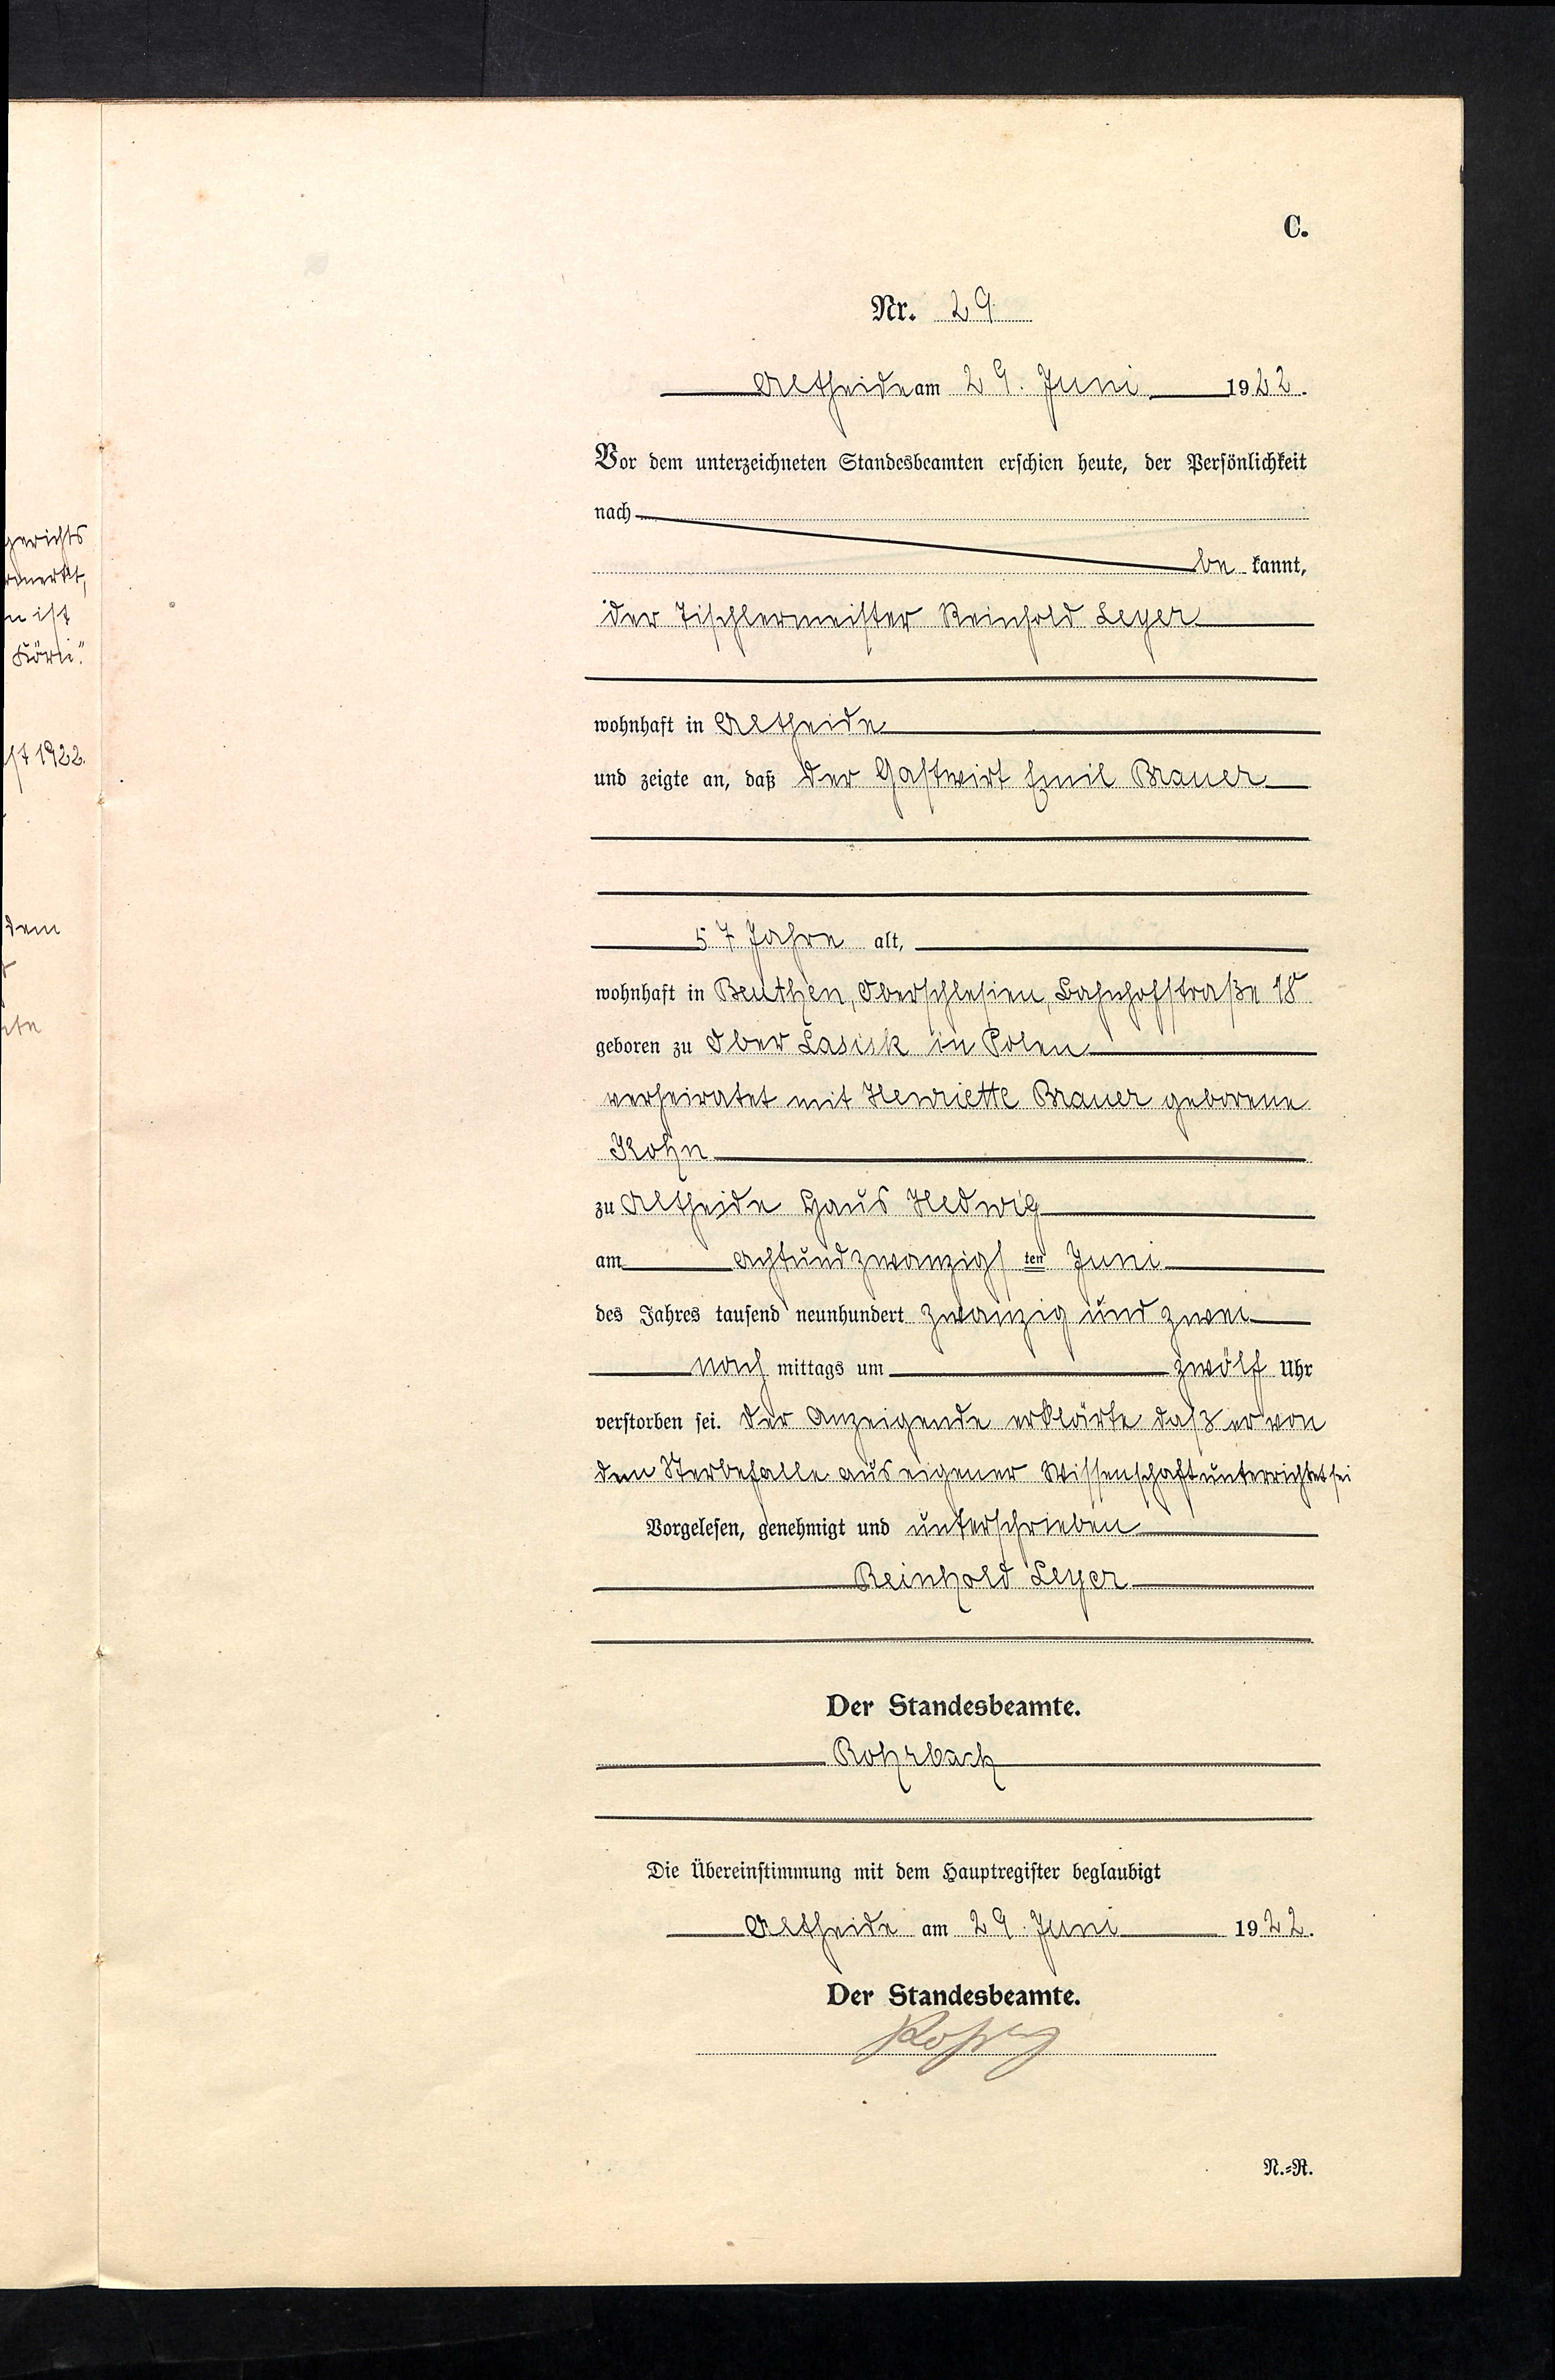 gerichts
ist
Köri."
1922.
dem
C.
Nr. 29
Altheide am 29. Juni 1922.
Vor dem unterzeichneten Standesbeamten erschien heute, der Persönlichkeit
nach
be kannt,
der Tischlermeister Reinhold Leyer
wohnhaft in Altheide
und zeigte an, daß der Gastwirt Emil Brauer
57 Jahre alt,
wohnhaft in Beuthen, Oberschlesien, Bahnhofstraße 18
geboren zu Ober Lasisk in Polen
verheiratet mit Henriette Brauer geborene
Kohn
zu Altheide Haus Hedwig
am achtundzwanzigsten Juni
des Jahres tausend neunhundert zwanzig und zwei
nach mittags um zwölf Uhr
verstorben sei. Der Anzeigende erklärte daß er von
dem Sterbefalle aus eigener Wissenschaft unterrichtet sei
Vorgelesen, genehmigt und unterschrieben
Reinhold Leyer
Der Standesbeamte.
Rohrbach
Die Übereinstimmung mit dem Hauptregister beglaubigt
Altheide am 29. Juni 1922.
Der Standesbeamte.
N.=R.